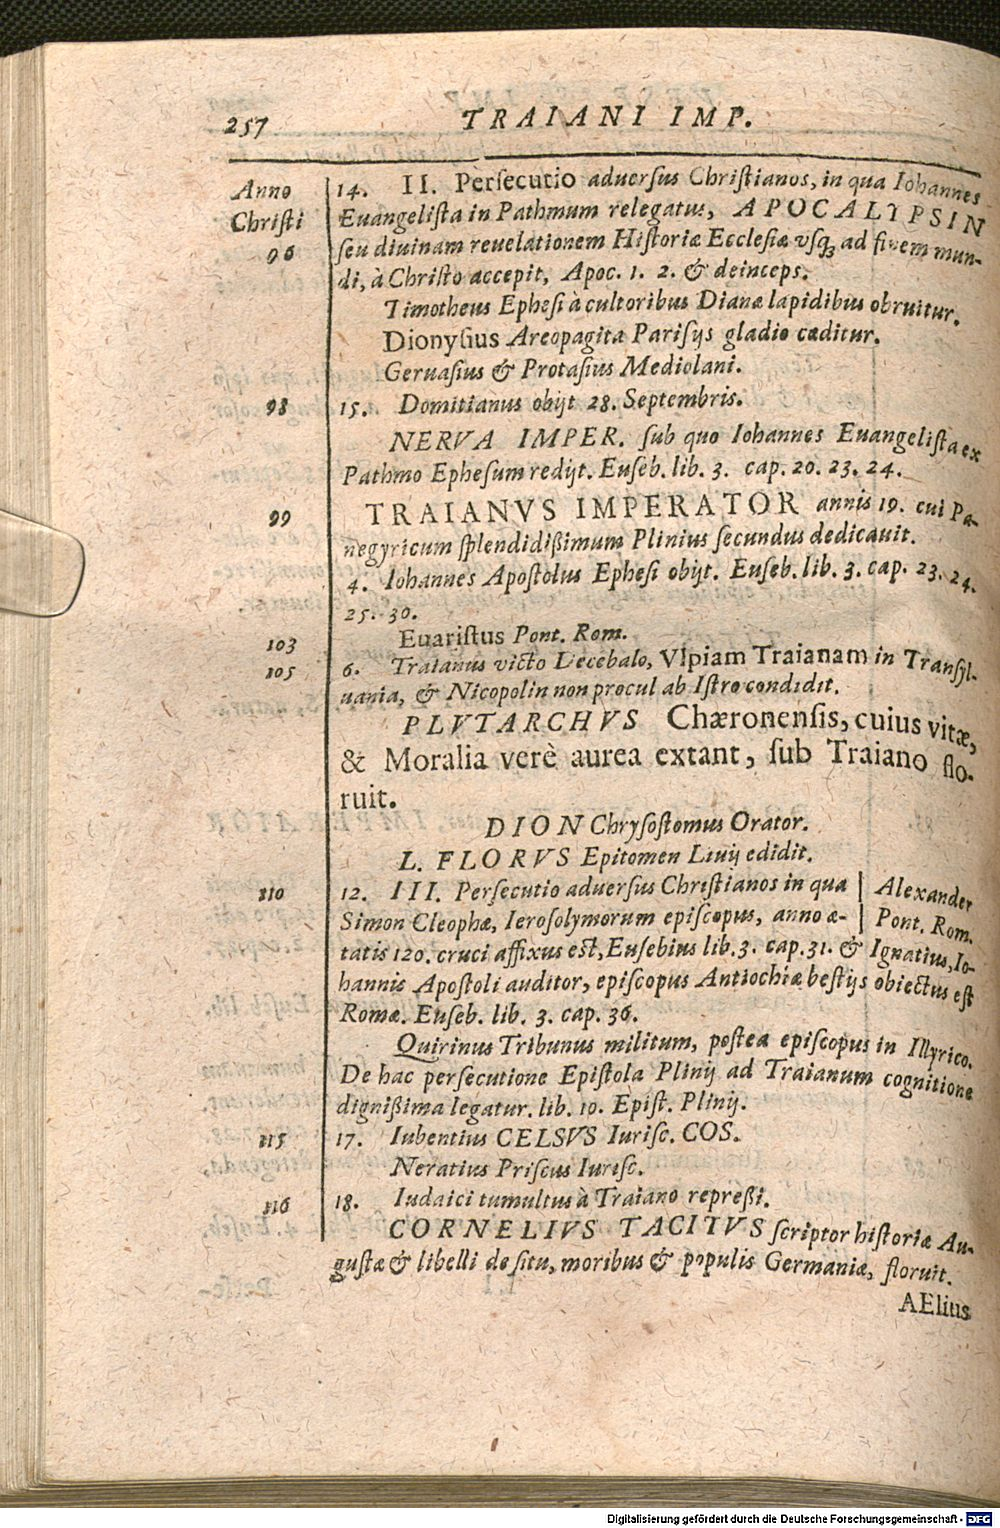 257 TRAIANI IMP.
Anno 14. II. Persecutio aduersus Christianos, in qua Iohannes
Christi Euangelista in Pathmum relegatus, APOCALYPSIN
96 seu diuinam reuelationem Historiæ Ecclesiæ vsq; ad finem mun-
di, à Christo accepit, Apoc. 1. 2. & deinceps.
Timotheus Ephesi à cultoribus Dianæ lapidibus obruitur.
Dionysius Areopagita Parisijs gladio cæditur.
Geruasius & Protasius Mediolani.
98 15. Domitianus obijt 28. Septembris.
NERVA IMPER. sub quo Iohannes Euangelista ex
Pathmo Ephesum redijt. Euseb. lib. 3. cap. 20. 23. 24.
99 TRAIANVS IMPERATOR annis 19. cui Pa-
negyricum splendidißimum Plinius secundus dedicauit.
4. Iohannes Apostolus Ephesi obijt. Euseb. lib. 3. cap. 23. 24.
25. 30.
103 Euaristus Pont. Rom.
105 6. Traianus victo Decebalo, Vlpiam Traianam in Transyl-
uania, & Nicopolin non procul ab Istro condidit.
PLVTARCHVS Chæronensis, cuius vitæ,
& Moralia verè aurea extant, sub Traiano flo-
ruit.
DION Chrysostomus Orator.
L. FLORVS Epitomen Liuij edidit.
110 12. III. Persecutio aduersus Christianos in qua | Alexander
Simon Cleophæ, Ierosolymorum episcopus, anno æ- | Pont. Rom.
tatis 120. cruci affixus est, Eusebius lib. 3. cap. 31. & Ignatius, Io-
hannis Apostoli auditor, episcopus Antiochiæ bestijs obiectus est
Romæ. Euseb. lib. 3. cap. 36.
Quirinus Tribunus militum, postea episcopus in Illyrico.
De hac persecutione Epistola Plinij ad Traianum cognitione
dignißima legatur. lib. 10. Epist. Plinij.
115 17. Iubentius CELSVS Iurisc. COS.
Neratius Priscus Iurisc.
116 18. Iudaici tumultus à Traiano repreßi.
CORNELIVS TACITVS scriptor historiæ Au-
gustæ & libelli de situ, moribus & populis Germaniæ, floruit.
AElius
Digitalisierung gefördert durch die Deutsche Forschungsgemeinschaft - DFG